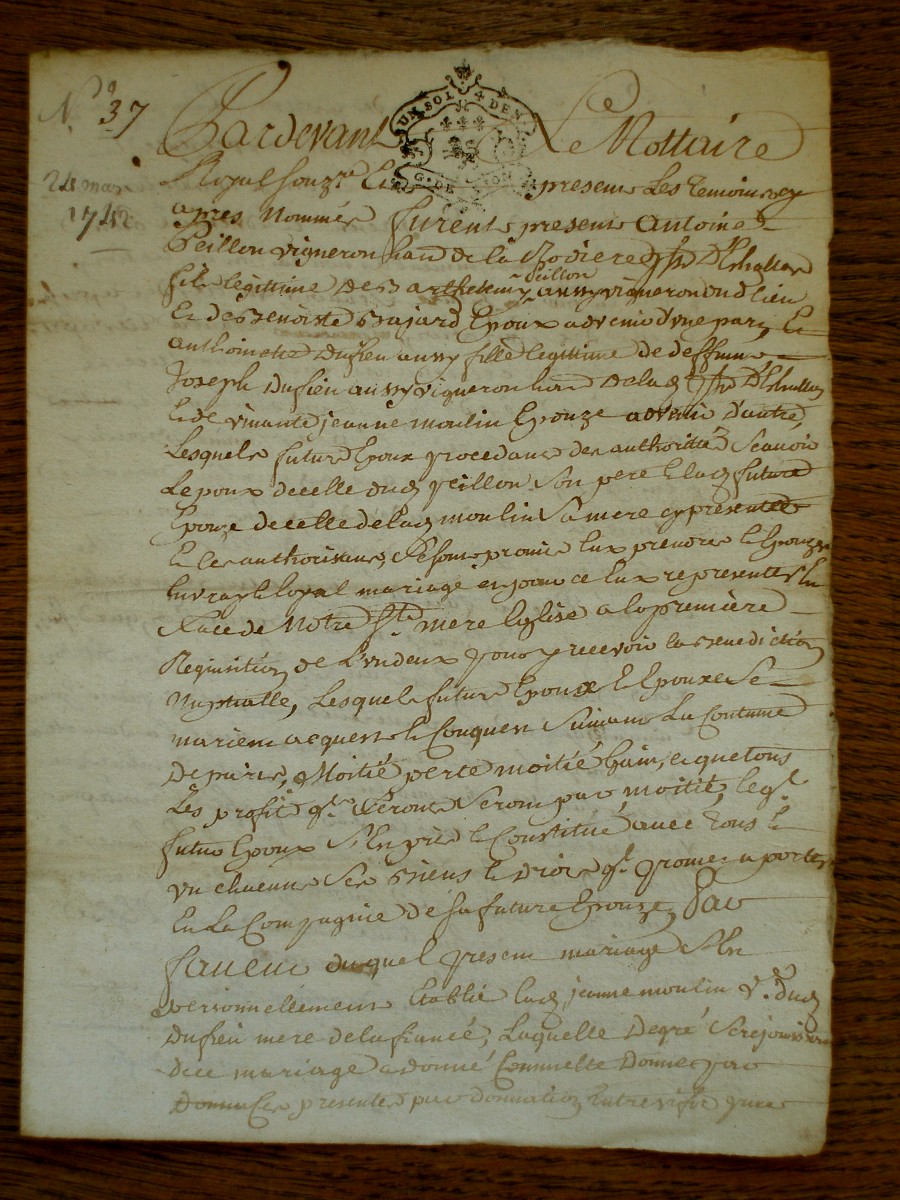 N.º 37
24 mars
1742
UN SOL DEN
G. DE LYON
Pardevant Le Nottaire
Royal souz.né Et presens Les Temoins cy
apres Nommés furent presens Antoine
Peillon vigneron hand de la Rodiere
fils legittime de Barthelemy Peillon aussy vigneron dud lieu
Et de Benoiste Bajard Epoux advenir d'une part, Et
anthoinette Dufieu aussy fille legittime de deffunt
Joseph Dufieu aussy vigneron hand de lad
Et de vivante jeanne moulin Epouze advenir d'autre,
Lesquels futurs Epoux procedans des authorittés Scauoir
Lepoux de celle dud peillon son pere Et lad future
Epouze de celle de lad moulin Sa mere cy presentes
Et les authorisans, se sont promis Eux prendre Et Epouzer
En vray Et loyal mariage Et pour ce Eux representer En
Face de Notre Ste mere Eglise a la premiere
Requisition de L'un deux pour y recevoir la Benediction
Nuptialle, Lesquels futurs Epoux Et Epouze Se
marient acquest Et Conquest Suivant La Coutume
de paris, Moitié perte moitié Gain, et que tous
Les profits qls feront Seront par moitié, led
futur Epoux S'En prie Et Constitué avec Tous Et
un chacuns Ses Biens Et Droits ql promet aporter
En La Compagnie de sa future Epouze, Par
faveur duquel present mariage S'En
personnellement Etablie lad jeanne moulin v.e dud
Dufieu mere de la fiancé, Laquelle de gré Se rejouissant
du ce mariage a donné Comme Elle Donne par
presentes par donnation Entre vifs pure